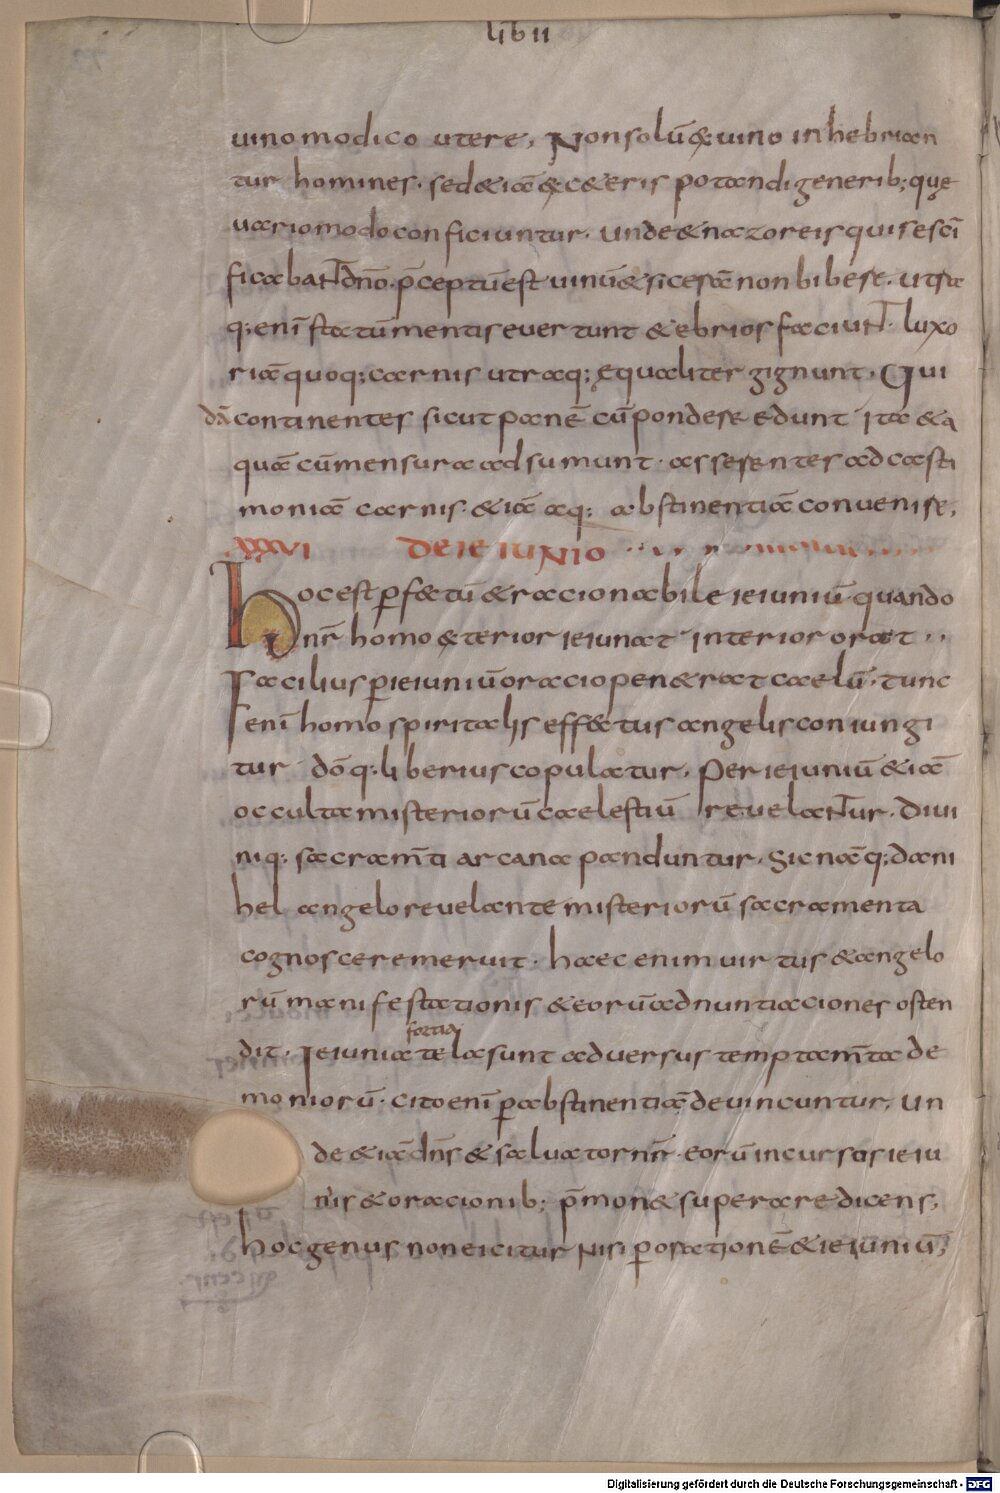 lib II
uino modico utere, Non solū & uino inhebrian
tur homines. sed & iā & c&eris potandi generib; quę
uario modo conficiuntur. unde & nazoreis qui se sc̄i
ficabant dn̄o. p̄ceptū est uinū & sicerā non bibere. utra
q; eni statū mentis euertunt & ebrios faciunt. luxo
riā quoq; carnis utraq; ęqualiter gignunt. Qui
dā continentes sicut panē cū pondere edunt Ita & a
quā cū mensura adsumunt. asserentes ad casti
moniā carnis. & iā aq; abstinentiā conuenire;
XXXVI DE IEIUNIO
Hoc est ꝑf&tū & racionabile ieiuniū quando
nr̄ homo &terior ieiunat interior orat..
Facilius ꝑ ieiuniū oracio pen&rat caelū. tunc
enī homo spiritalis effectus angelis coniungi
tur dōq; liberius copulatur. Per ieiuniū & iā
occulta misteriorū caelestiū reuelantur. diui
niq; sacram̄ti arcana panduntur. Sic nāq; dani
hel angelo reuelante misteriorū sacramenta
cognoscere meruit. haec enim uirtus & angelo
rū manifestationis & eorū adnuntiaciones osten
dit. Ieiunia fortia tela sunt aduersus temptam̄ta de
moniorū. cito enī ꝑ abstinentiā deuincuntur. un
de & iā dn̄s & saluator nr̄ eorū incursus ieiu
niis & oracionib; p̄mon& superare dicens,
hoc genus non eicitur nisi ꝑ orationē & ieiuniū;
Digitalisierung gefördert durch die Deutsche Forschungsgemeinschaft - DFG